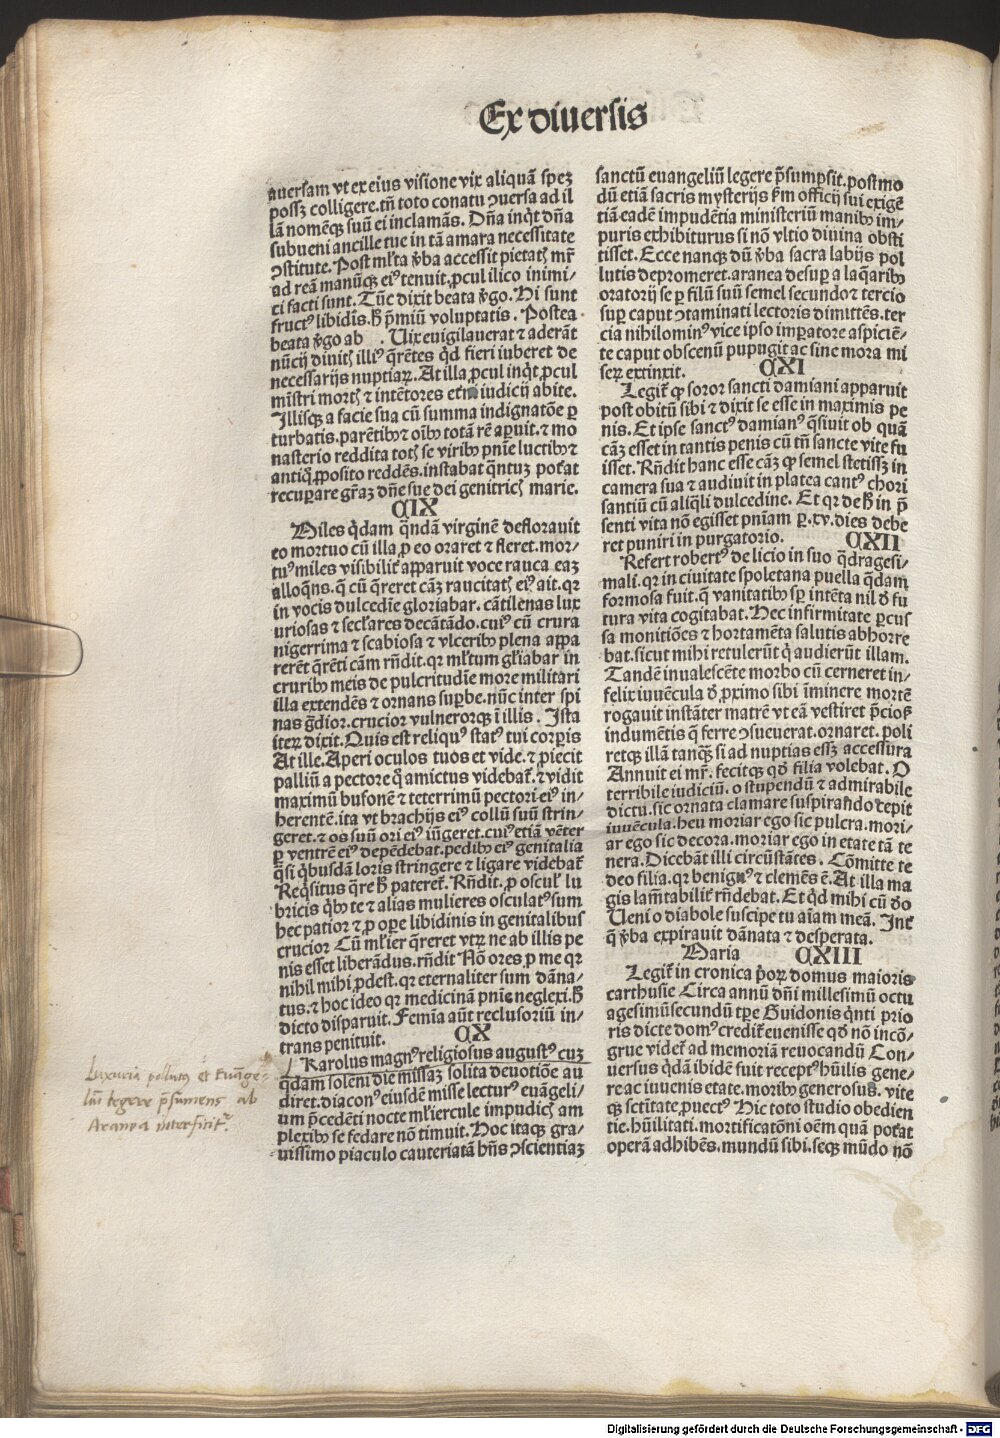 Ex diuersis
auersam vt ex eius visione vix aliquã spez
possz colligere. tñ toto conatu ↄuersa ad il
lã nomẽqꝫ suũ ei inclamãs. Dña inqͥt dña
subueni ancille tue in tã amara necessitate
ↄstitute. Post ml'ta v̾ba accessit pietatꝭ mr̃
ad reã manũqꝫ eiꝰ tenuit. ꝓcul ilico inimi⸗
ci facti sunt. Tũc dixit beata v̾go. Hi sunt
fructꝰ libidĩs. h̃ p̃miũ voluptatis. Postea
beata v̾go ab . Uix euigilauerat ⁊ aderãt
nũcij diuitꝭ illiꝰ q̃rẽtes qd̃ fieri iuberet de
necessarijs nuptiaꝝ. At illa ꝓcul inqͥt ꝓcul
mĩstri mortꝭ ⁊ intẽtores et̾ni iudicij abite.
Illisqꝫ a facie sua cũ summa indignatõe ꝑ
turbatis. parẽtibꝰ ⁊ oĩbꝰ totã rẽ aꝑuit. ⁊ mo
nasterio reddita totꝭ se viribꝰ pnĩe luctibꝰ ⁊
antiqͦ ꝓposito reddẽs. instabat q̃ntuz potͤat
recuꝑare gr̃az dñe sue dei genitricꝭ marie.
CIX
Miles qͥdam qͣndã virginẽ deflorauit
eo mortuo cũ illa ꝓ eo oraret ⁊ fleret. mor⸗
tuꝰ miles visibilit̾ apparuit voce rauca eaz
alloqñs. q̃ cũ q̃reret cãz raucitatꝭ eiꝰ ait. qꝛ
in vocis dulcedĩe gloriabar. cãtilenas lux
uriosas ⁊ secl'ares decãtãdo. cuiꝰ cũ crura
nigerrima ⁊ scabiosa ⁊ vlceribꝰ plena appa
rerẽt q̃rẽti cãm rñdit. qꝛ ml'tum gl'iabar in
cruribꝰ meis de pulcritudĩe more militari
illa extendẽs ⁊ ornans suꝑbe. nũc inter spi
nas g̃dior. crucior vulnerorqꝫ ĩ illis. Ista
iteꝝ dixit. Quis est reliquꝰ statꝰ tui corꝑis
At ille. Aperi oculos tuos et vide. ⁊ ꝓiecit
palliũ a pectore qͦ amictus videbat̾. ⁊ vidit
maximũ bufonẽ ⁊ teterrimũ pectori eiꝰ in⸗
herentẽ. ita vt brachijs eiꝰ collũ suũ strin⸗
geret. ⁊ os suũ ori eiꝰ iũgeret. cuiꝰ etiã vẽter
ꝑ ventrẽ eiꝰ depẽdebat. pedibꝰ eiꝰ genitalia
qͣsi qͥbusdã loris stringere ⁊ ligare videbat̾
Reqͥsitus q̃re h̃ pateret̾. Rñdit. ꝓ oscul' lu
bricis qͥbꝰ te ⁊ alias mulieres osculatꝰ sum
hec patior ⁊ ꝓ oꝑe libidinis in genitalibus
crucior Cũ ml'ier q̃reret vtꝝ ne ab illis pe
nis esset liberãdus. rñdit Nõ ores ꝓ me qꝛ
nihil mihi ꝓdest. qꝛ eternaliter sum dãna⸗
tus. ⁊ hoc ideo qꝛ medicinã pnĩe neglexi. h̃
dicto disparuit. Femĩa aũt reclusoriũ in⸗
trans penituit.
CX
Karolus magnꝰ religiosus augustꝰ cuz
qͣdam soleni die missaz solita deuotiõe au
diret. diaconꝰ eiusdẽ misse lecturꝰ euãgeli⸗
um p̃cedẽti nocte ml'iercule impudicꝭ am
plexibꝰ se fedare nõ timuit. Hoc itaqꝫ gra⸗
uissimo piaculo cauteriatã hñs ↄscientiaz
Luxuria pollutus et Euãge⸗
liũ legere p̃sumens ab
Aranea interficitr.
sanctũ euangeliũ legere p̃sumpsit. postmo
dũ etiã sacris mysterijs scd̃m officij sui exigẽ
tiã eadẽ impudẽtia ministeriũ manibꝰ im⸗
puris exhibiturus si nõ vltio diuina obsti
tisset. Ecce nanqꝫ dũ v̾ba sacra labijs pol
lutis depromeret. aranea desuꝑ a laq̃aribꝰ
oratorij se ꝑ filũ suũ semel secundo ⁊ tercio
suꝑ caput ↄtaminati lectoris dimittẽs. ter
cia nihilominꝰ vice ipso imꝑatore aspiciẽ⸗
te caput obscenũ pupugit ac sine mora mi
seꝝ extinxit.
CXI
Legit̾ ꝙ soror sancti damiani apparuit
post obitũ sibi ⁊ dixit se esse in maximis pe
nis. Et ipse sanctꝰ damianꝰ q̃siuit ob quã
cãz esset in tantis penis cũ tñ sancte vite fu
isset. Rñdit hanc esse cãz ꝙ semel stetissz in
camera sua ⁊ audiuit in platea cantꝰ chori
santiũ cũ aliqͣli dulcedine. Et qꝛ de h̃ in p̃
senti vita nõ egisset pnĩam ꝑ .xv. dies debe
ret puniri in purgatorio.
CXII
Refert robertꝰ de licio in suo qͣdragesi⸗
mali. qꝛ in ciuitate spoletana puella qͣdam
formosa fuit. q̃ vanitatibꝰ sꝑ intẽta nil d̾ fu
tura vita cogitabat. Hec infirmitate ꝑcus
sa monitiões ⁊ hortamẽta salutis abhorre
bat. sicut mihi retulerũt qͥ audierũt illam.
Tandẽ inualescẽte morbo cũ cerneret in⸗
felix iuuẽcula d̾ ꝓximo sibi ĩminere mortẽ
rogauit instãter matrẽ vt eã vestiret p̃ciosꝭ
indumẽtis q̃ ferre ↄsueuerat. ornaret. poli
retqꝫ illã tanqꝫ̃ si ad nuptias essz accessura
Annuit ei mr̃. fecitqꝫ qd̾ filia volebat. O
terribile iudiciũ. o stupendũ ⁊ admirabile
dictu. sic ornata clamare suspirando cepit
iuuẽcula. heu moriar ego sic pulcra. mori⸗
ar ego sic decora. moriar ego in etate tã te
nera. Dicebãt illi circũstãtes. Cõmitte te
deo filia. qꝛ benignꝰ ⁊ clemẽs ẽ. At illa ma
gis lamẽtabilit̾ rñdebat. Et qͥd mihi cũ d̾o
Ueni o diabole suscipe tu aĩam meã. Int̾
q̃ v̾ba expirauit dãnata ⁊ desperata.
Maria CXIII
Legit̾ in cronica p̾oꝝ domus maioris
carthusie Circa annũ dñi millesimũ octu
agesimũsecundũ tꝑe Guidonis qͥnti prio
ris dicte domꝰ credit̾ euenisse qd̾ nõ incõ⸗
grue videt̾ ad memoriã reuocandũ Con⸗
uersus qͥdã ibidẽ fuit receptꝰ hũilis gene⸗
re ac iuuenis etate. moribꝰ generosus. vite
qꝫ sctĩtate ꝓuectꝰ Hic toto studio obedien
tie. hũilitati. mortificatõni oẽm quã potͤat
operã adhibẽs. mundũ sibi. seqꝫ mũdo nõ
Digitalisierung gefördert durch die Deutsche Forschungsgemeinschaft - DFG